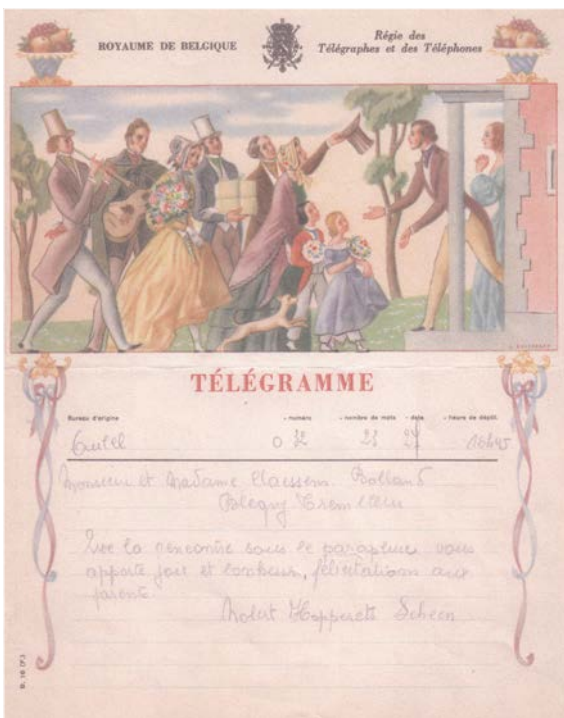 ROYAUME DE BELGIQUE
Régie des
Télégraphes et des Téléphones
TÉLÉGRAMME
Bureau d'origine - numéro - nombre de mots - date - heure de dépôt.
0 32 23 27 16h45
Monsieur et Madame Claessens Bolland
Blegny Trembleur
Que la rencontre sous le parapluie vous
apporte joie et bonheur, félicitations aux
parents
Scheen
B. 16 (F.)